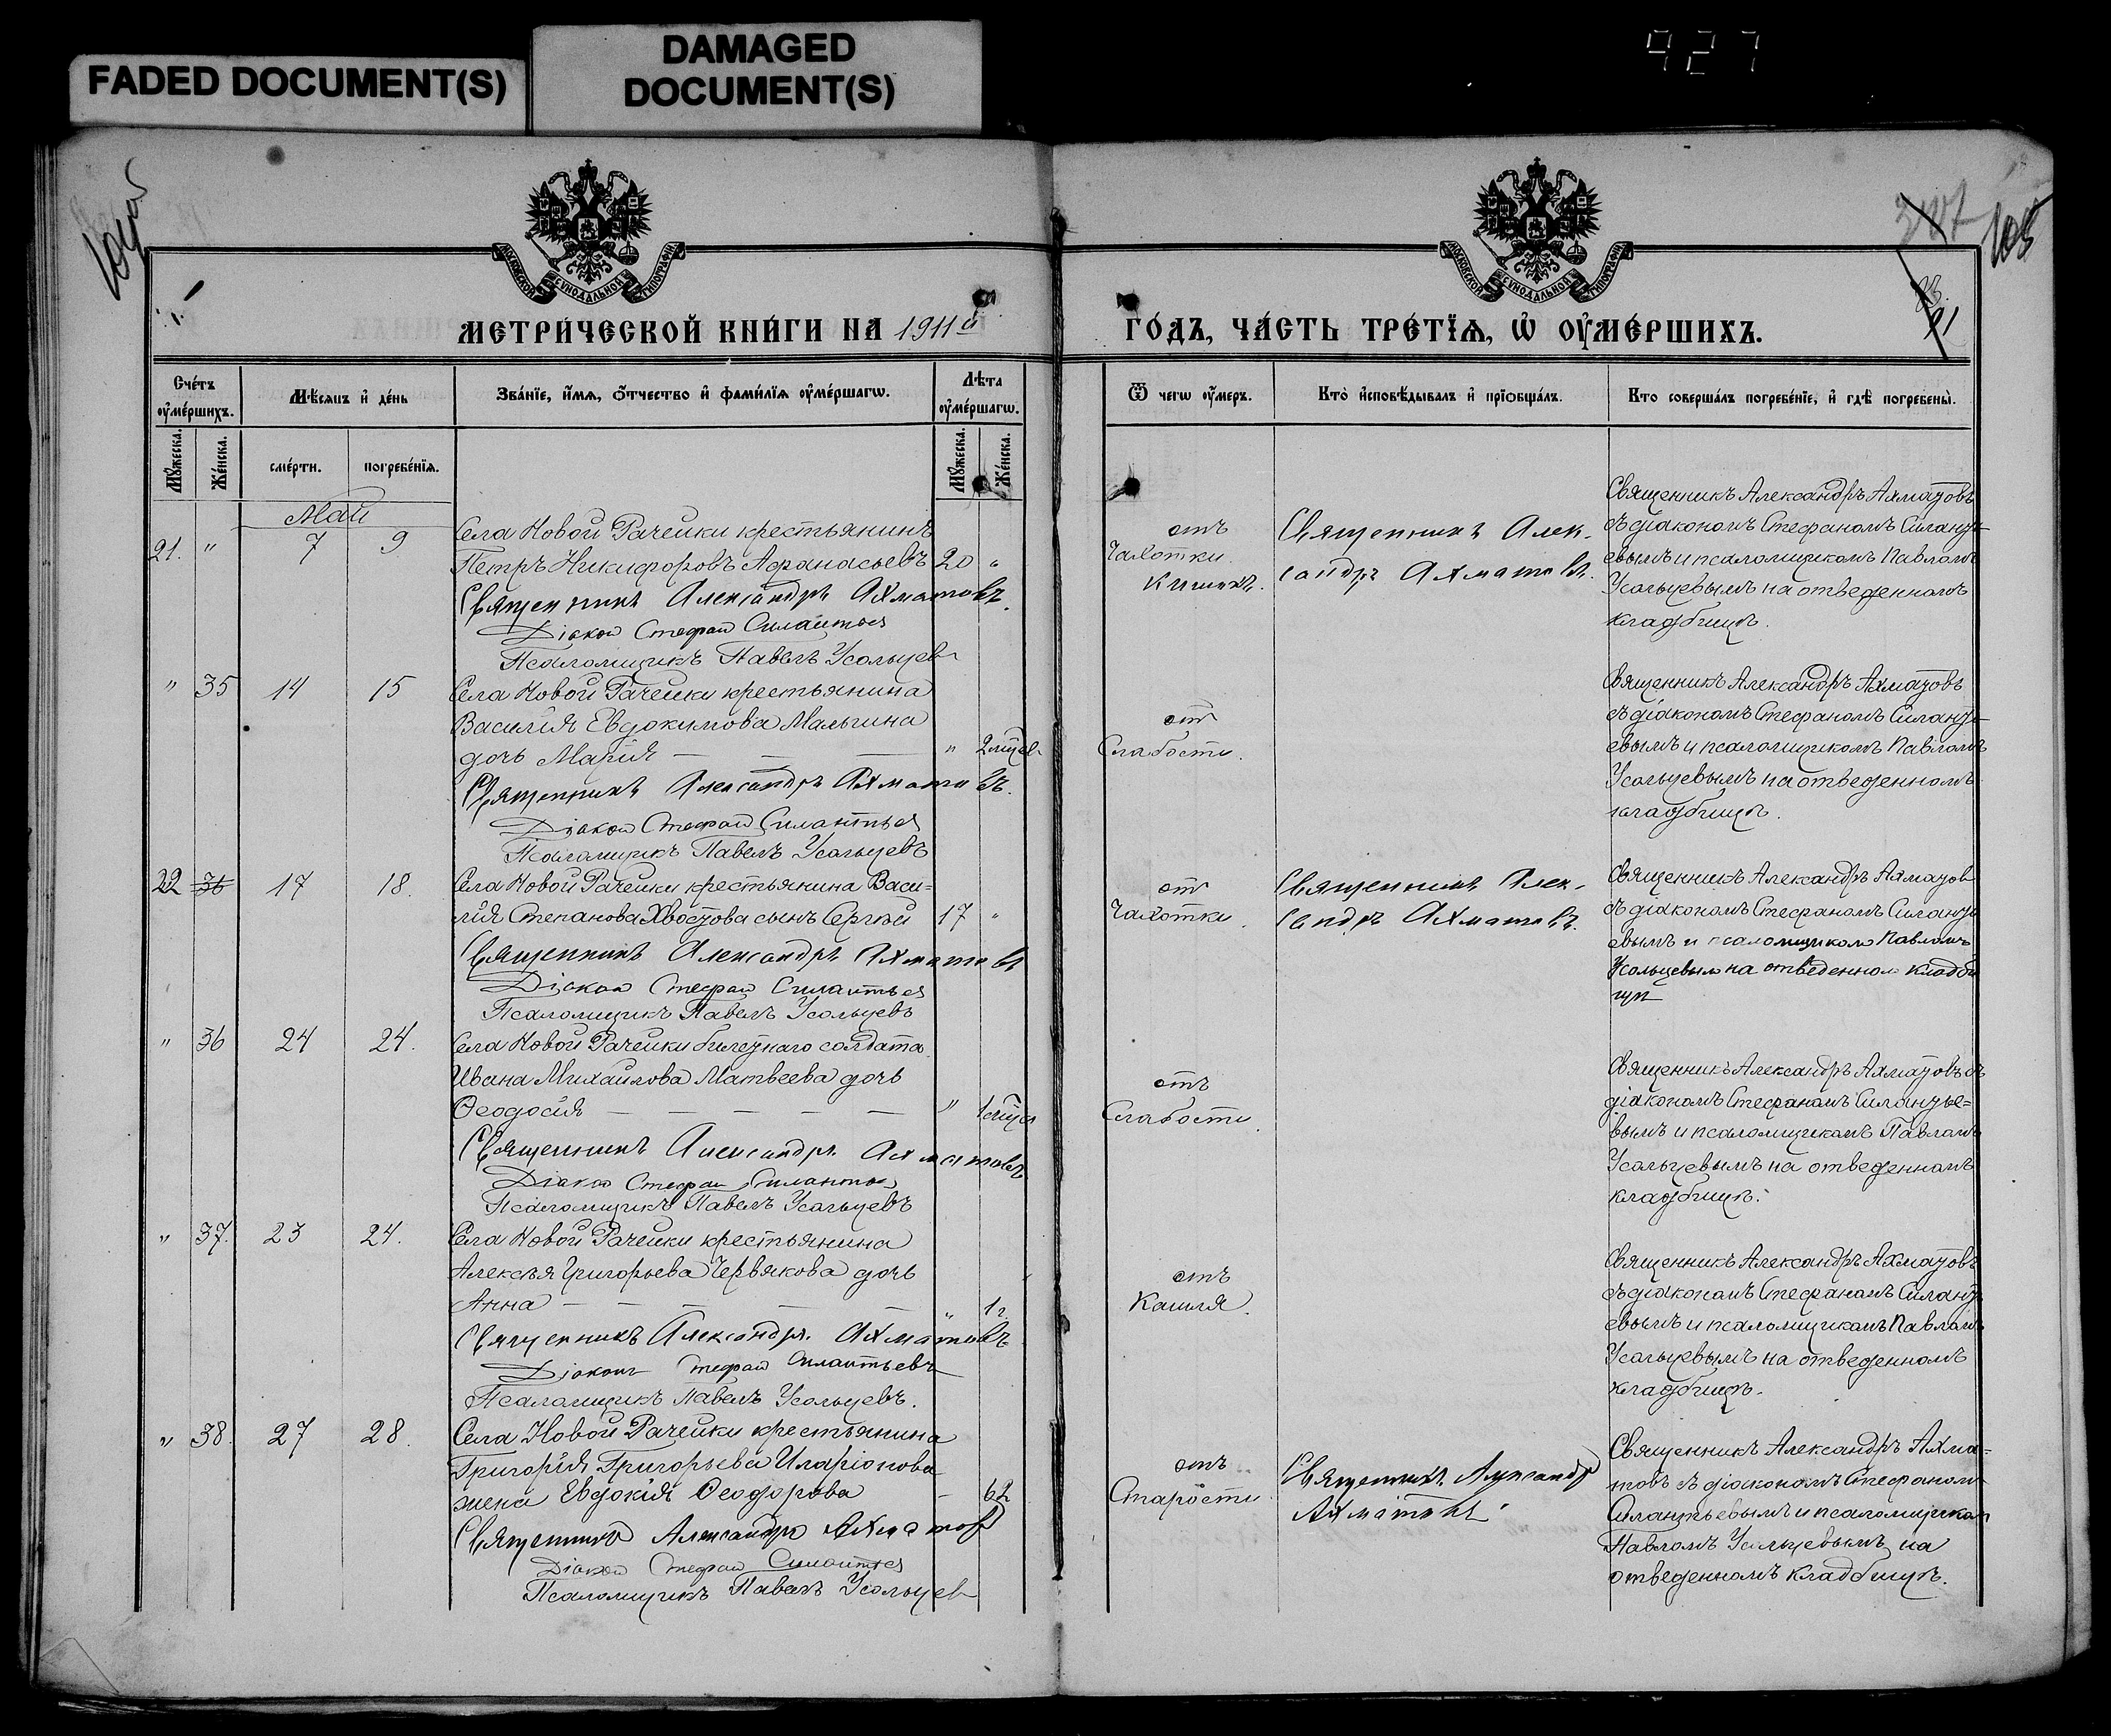 FADED DOCUMENT(S)
DAMAGED
DOCUMENT(S)
927
105
МОСКОВСКОЙ СѴНОДАЛЬНОЙ ТИПОГРАФІИ
МОСКОВСКОЙ СѴНОДАЛЬНОЙ ТИПОГРАФІИ
МЕТРИ́ЧЕСКОЙ КНИ́ГИ НА 1911й
ГО́ДЪ, ЧА́СТЬ ТРЕ́ТЇѦ, Ѡ҆ ОУ҆МЕ́РШИХЪ.
Сче́тъ оу҆ме́ршихъ.
Мѣ́сѧцъ и҆ де́нь
Зва́нїе, и҆́мѧ, ѻ҆́тчество и҆ фами́лїѧ оу҆ме́ршагѡ.
Лѣ́та оу҆ме́ршагѡ.
Ѿ чегѡ̀ оу҆́меръ.
Кто̀ и҆сповѣ́дывалъ и҆ прїѡбща́лъ.
Кто соверша́лъ погребе́нїе, и҆ гдѣ̀ погребены̀.
Мꙋ́жеска.
Же́нска.
сме́рти.
погребе́нїѧ.
Мꙋ́жеска.
Же́нска.
Май
21. " 7 9
Села Новой Рачейки крестьянинъ
Петръ Никифоровъ Афанасьевъ 20 "
Священникъ Александръ Ахматовъ.
Діакон Стефан Силантьев
Псаломщикъ Павелъ Усольцев
отъ
Чахотки
кишекъ.
Священникъ Алек-
сандръ Ахматовъ.
Священникъ Александръ Ахматовъ
съ діакономъ Стефаномъ Силанть-
евымъ и псаломщикомъ Павломъ
Усольцевымъ на отведенномъ
кладбищѣ.
" 35 14 15
Села Новой Рачейки крестьянина
Василія Евдокимова Малыгина
дочь Марія — — — " 2 мѣсе.
Священникъ Александръ Ахматовъ.
Діакон Стефан Силантьев
Псаломщикъ Павелъ Усольцевъ
отъ
Слабости.
Священникъ Александръ Ахматовъ
съ діакономъ Стефаномъ Силанть-
евымъ и псаломщикомъ Павломъ
Усольцевымъ на отведенномъ
кладбищѣ.
22 36 17 18.
Села Новой Рачейки крестьянина Васи-
лія Степанова Хвостова сынъ Сергѣй 17 "
Священникъ Александръ Ахматовъ
Діакон Стефан Силантьев
Псаломщикъ Павелъ Усольцевъ
отъ
Чахотки.
Священникъ Алек-
сандръ Ахматовъ.
Священникъ Александръ Ахматов
съ діакономъ Стефаномъ Силанть
евымъ и псаломщиком Павломъ
Усольцевым на отведенном кладби
щѣ
" 36 24 24.
Села Новой Рачейки билетнаго солдата
Ивана Михайлова Матвеева дочь
Ѳеодосія — — — — — " 1 мѣся
Священникъ Александръ Ахматовъ
Діакон Стефан Силантьев
Псаломщикъ Павелъ Усольцевъ
отъ
Слабости.
Священникъ Александръ Ахматовъ съ
діакономъ Стефаномъ Силантье-
вымъ и псаломщикомъ Павломъ
Усольцевымъ на отведенномъ
кладбищѣ.
" 37. 23 24.
Села Новой Рачейки крестьянина
Алексѣя Григорьева Червякова дочь
Анна — — — — — " 1 г.
Священникъ Александръ Ахматовъ
Діаконъ Стефан Силантьевъ
Псаломщикъ Павелъ Усольцевъ.
отъ
Кашля.
Священникъ Александръ Ахматовъ
съ діакономъ Стефаномъ Силанть
евымъ и псаломщикомъ Павломъ
Усольцевымъ на отведенномъ
кладбищѣ.
" 38. 27 28.
Села Новой Рачейки крестьянина
Григорія Григорьева Иларіонова
жена Евдокія Ѳеодорова — 62
Священникъ Александръ Ахматов
Діакон Стефан Силантьев
Псаломщикъ Павелъ Усольцев
отъ
Старости
Священникъ Александр
Ахматовъ.
Священникъ Александръ Ахма-
товъ съ діакономъ Стефаном
Силантьевымъ и псаломщиком
Павломъ Усольцевымъ на
отведенномъ кладбищѣ.